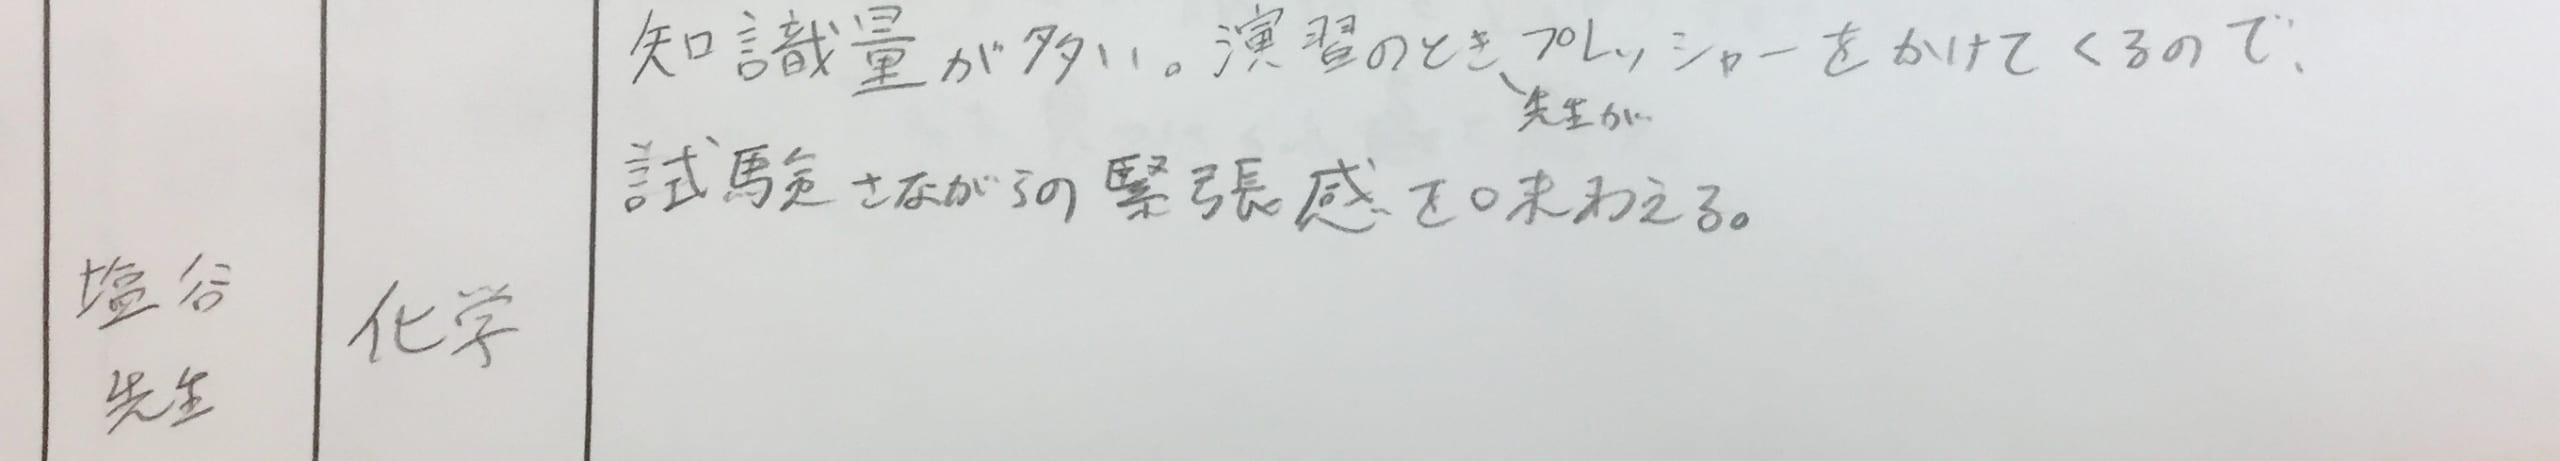 知識量が多い。演習のときプレッシャーをかけてくるので、
先生が
試験さながらの緊張感を味わえる。
塩谷
先生
化学